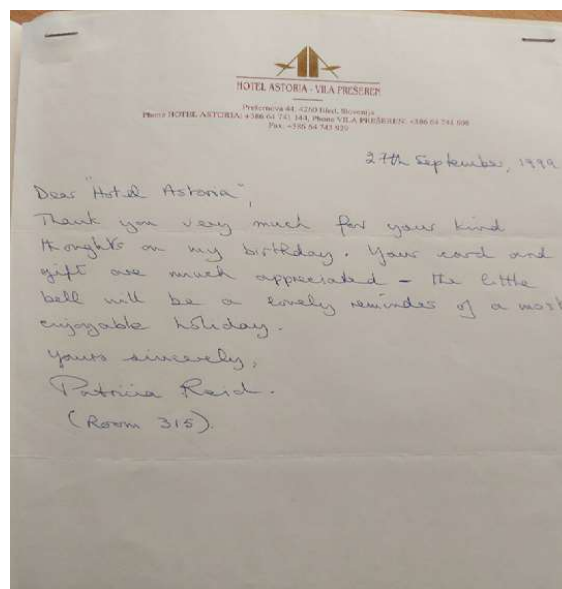 HOTEL ASTORIA - VILA PREŠEREN
Prešernova 44, 4260 Bled, Slovenija
Phone HOTEL ASTORIA: +386 64 741 144, Phone VILA PREŠEREN: +386 64 741 608
Fax: +386 64 741
27th September, 1999
Dear "Hotel Astoria",
Thank you very much for your kind
thoughts on my birthday. Your card and
gift are much appreciated - the little
bell will be a lovely reminder of a most
enjoyable holiday.
Yours sincerely,
Patricia Reid.
(Room 315).